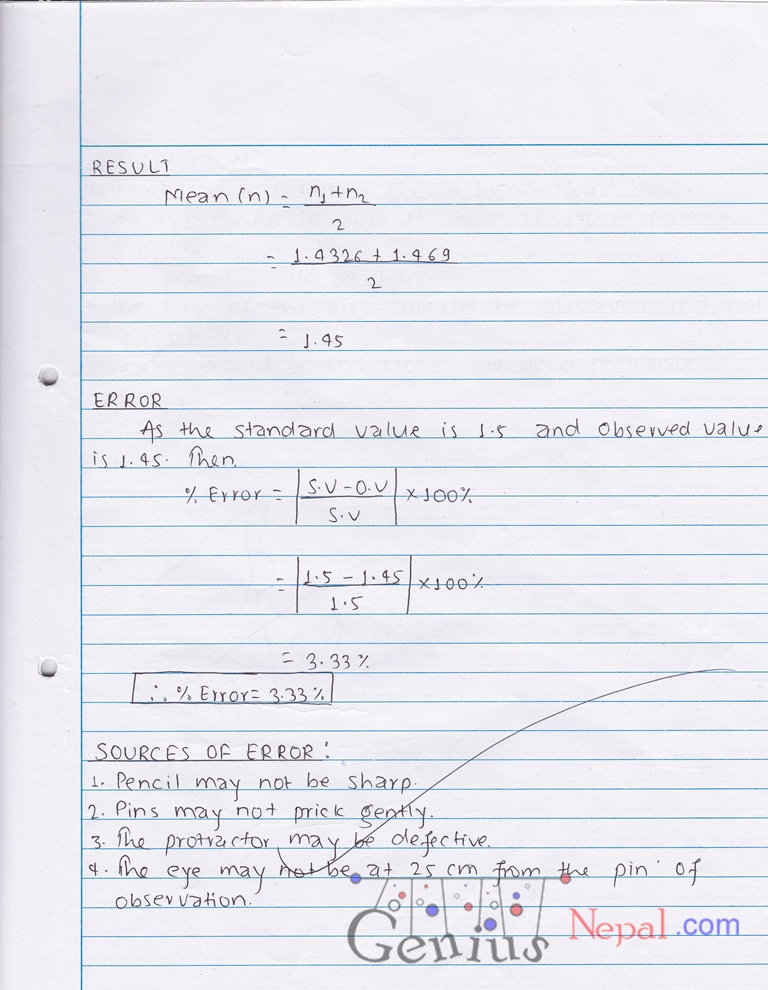 RESULT
Mean (n) = n1+n2
2
= 1.4326 + 1.469
2
= 1.45
ERROR
As the standard value is 1.5 and observed value
is 1.45. Then,
% Error = |S.V - O.V| × 100%
S.V
= |1.5 - 1.45| × 100%
1.5
= 3.33 %
∴ % Error = 3.33 %
SOURCES OF ERROR :
1. Pencil may not be sharp.
2. Pins may not prick gently.
3. The protractor may be defective.
4. The eye may not be at 25 cm from the pin of
observation.
Genius Nepal.com